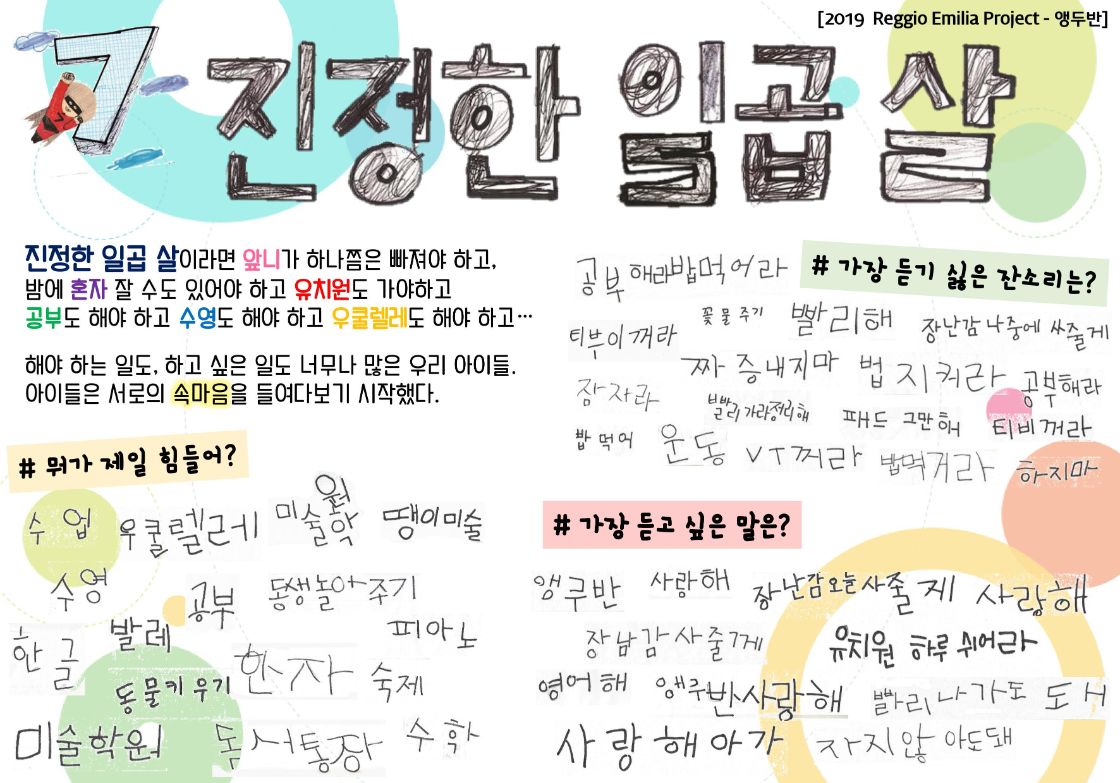 [2019 Reggio Emilia Project - 앵두반]
7 진정한 일곱 살
진정한 일곱 살이라면 앞니가 하나쯤은 빠져야 하고,
밤에 혼자 잘 수도 있어야 하고 유치원도 가야하고
공부도 해야 하고 수영도 해야 하고 우쿨렐레도 해야 하고…
해야 하는 일도, 하고 싶은 일도 너무나 많은 우리 아이들.
아이들은 서로의 속마음을 들여다보기 시작했다.
# 뭐가 제일 힘들어?
수 업 우쿨렐레 미술학원 땡이미술
수영 공부 동생놀아주기
한글 발레 피아노
동물키우기 한자 숙제
미술학원 독서통장 수학
# 가장 듣기 싫은 잔소리는?
공부해라 밥먹어라
티부이꺼라 꽃물주기 빨리해 장난감나중에 싸줄게
짜증내지마 법지켜라 공부해라
잠자라 빨리가라정리해 패드 그만해 티비꺼라
밥먹어 운동 VT꺼라 밥먹거라 하지마
# 가장 듣고 싶은 말은?
앵쿠반 사랑해 장난감오늘사줄게 사랑해
장남감사줄게 유치원 하루 쉬어라
영어해 앵쿠반사랑해 빨리나가도 도서
사랑해아가 자지않아도돼